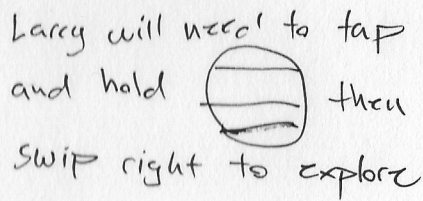 Larry will need to tap
and hold then
swip right to explore